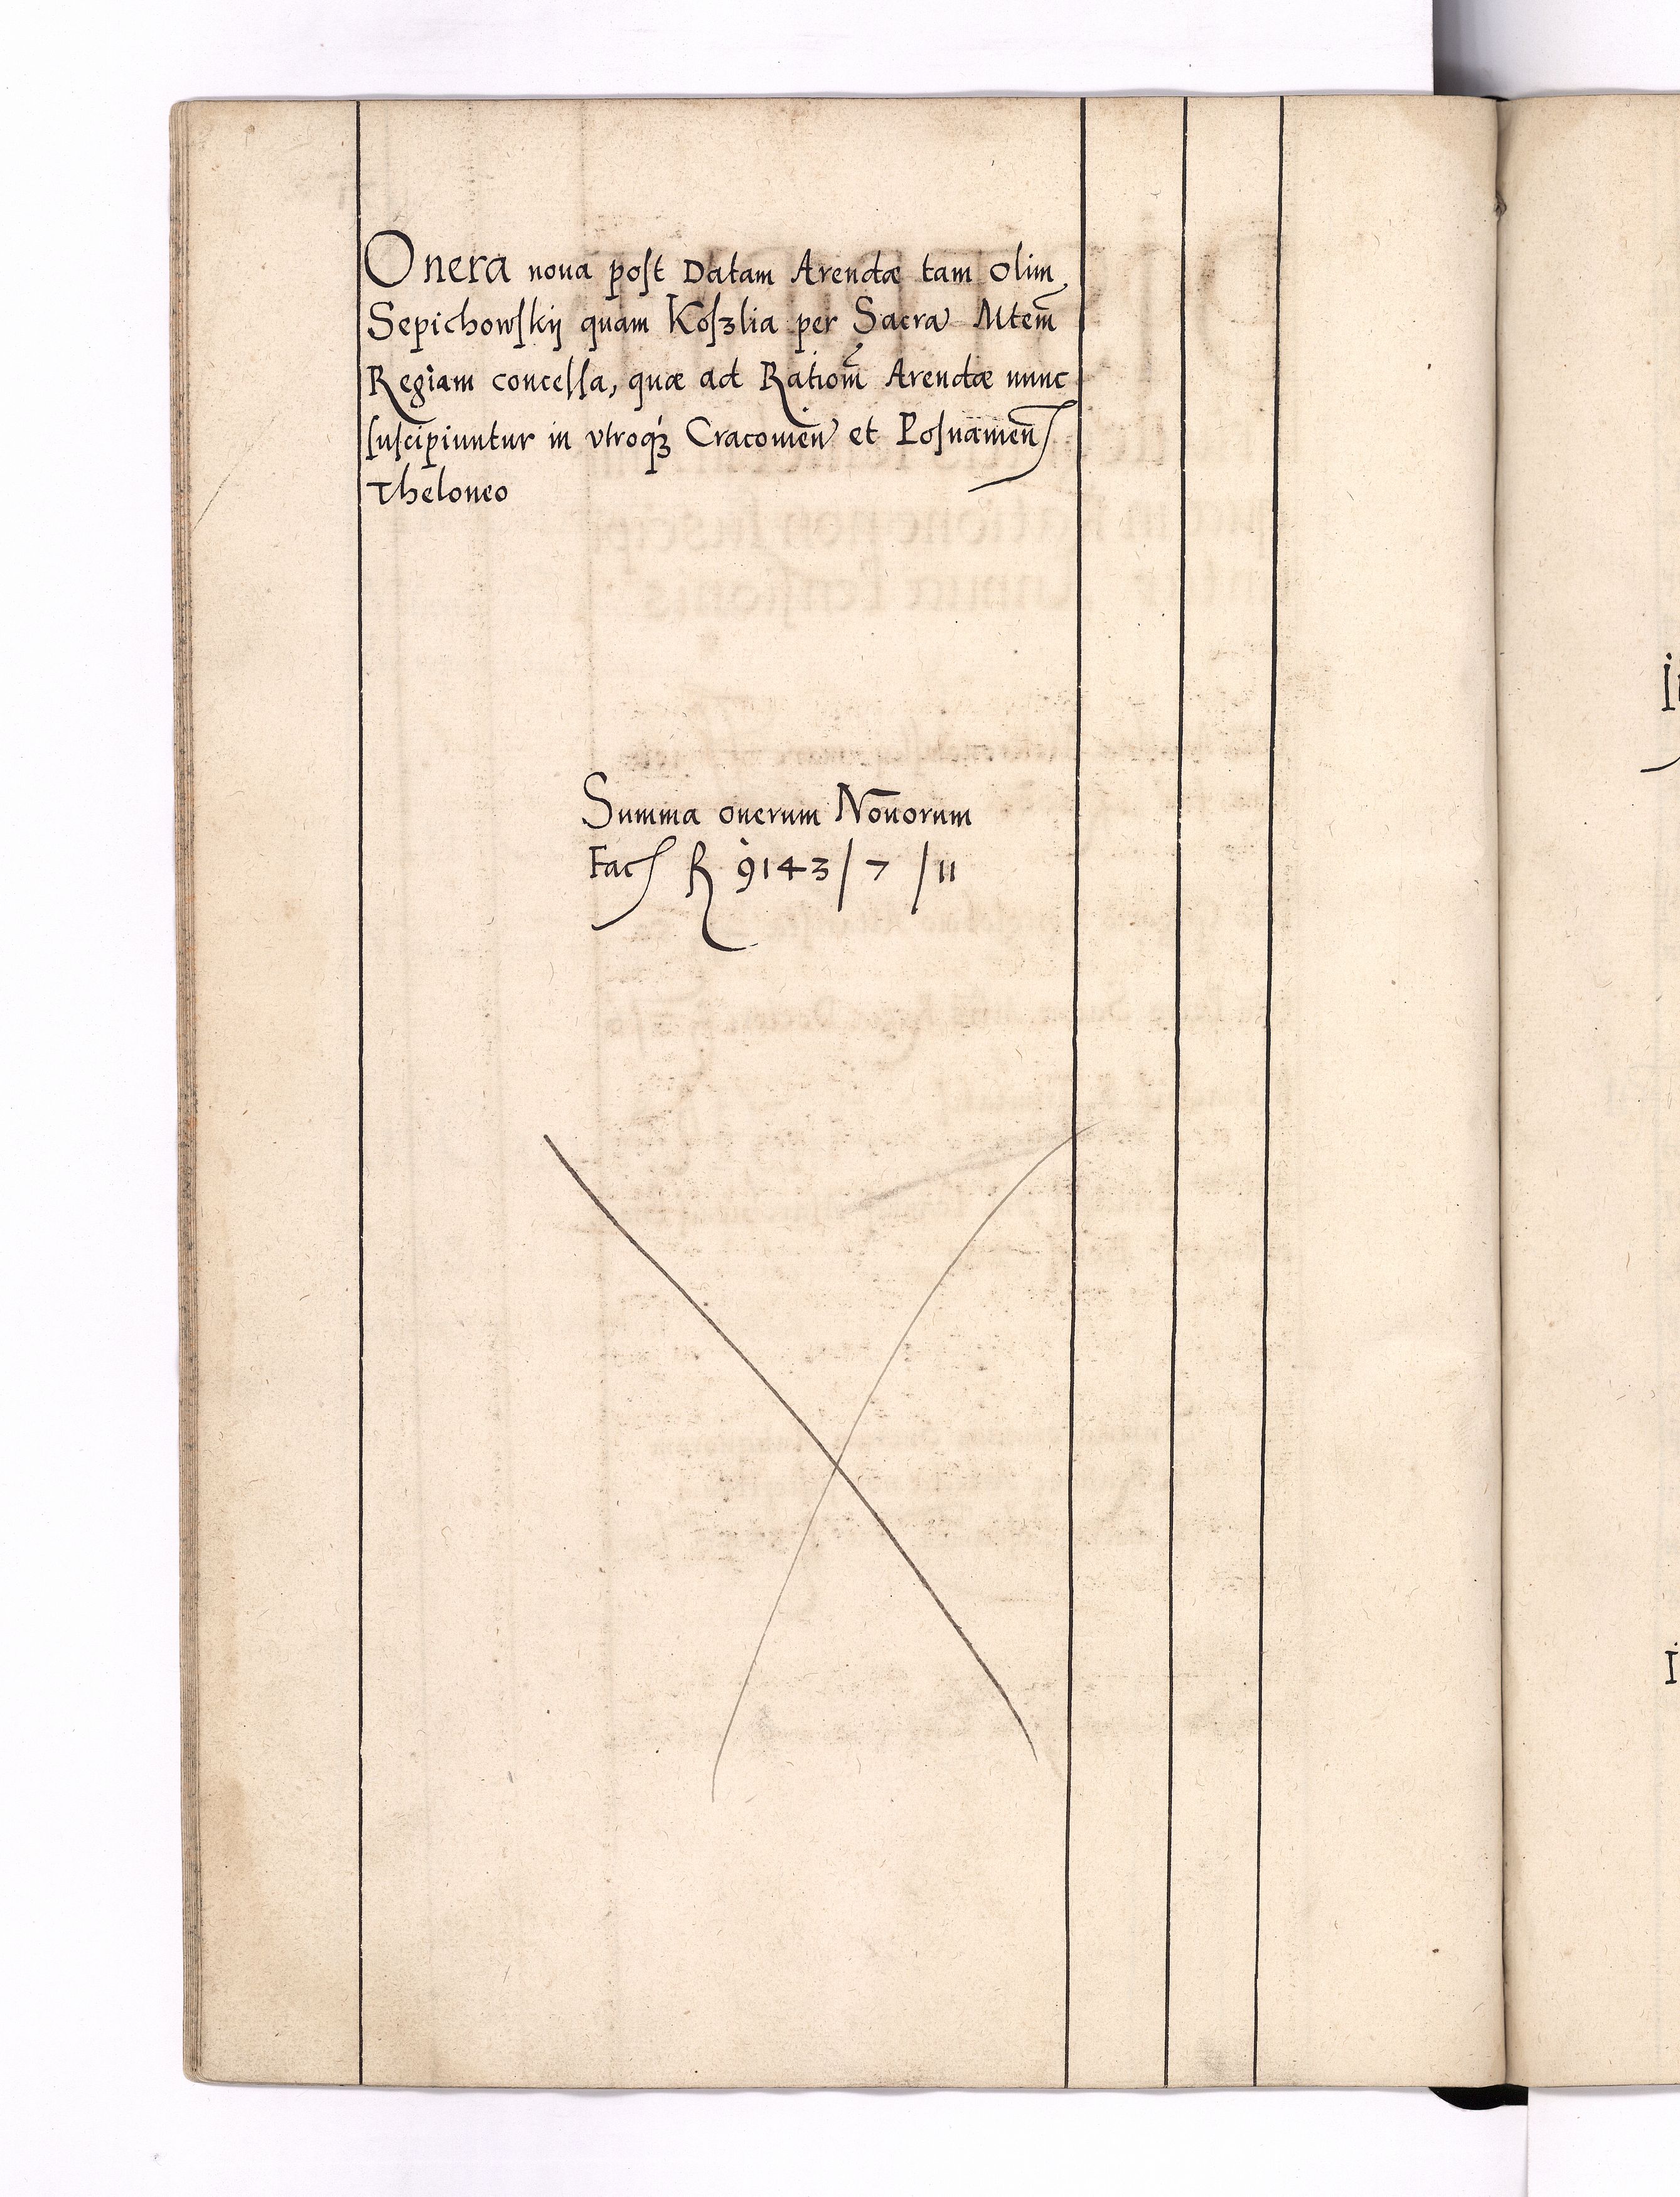 Onera noua post Datam Arendæ tam olim
Sepichowskij quam Koszlia per Sacra Mtem̃
Regiam concessa, quæ ad Ratiom̃ Arendæ nunc
suscipiuntur in vtroqꝫ Cracouien̄ et Posnanien̄
Theloneo
Summa onerum Nouorum
Fac R 9143/7/11